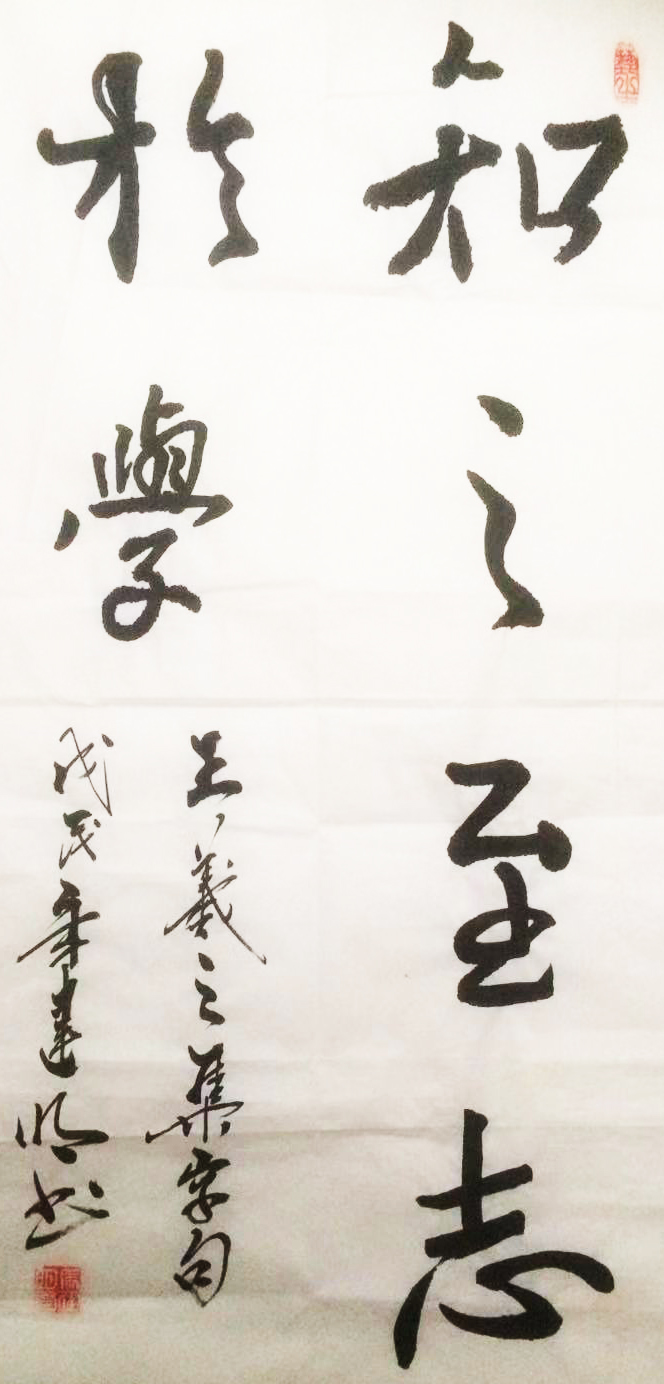 知之至志
於學
王羲之集字句
戊戌年建明书